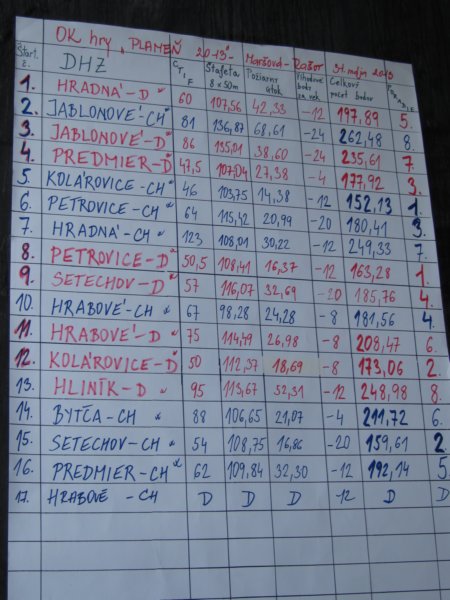 OK hry „PLAMEŇ 2013" - Maršová - Rašov 31. mája 2013
Štart. č. DHZ CTIF Štafeta 8 x 50m Požiarny útok Príhodové body za vek Celkový počet bodov PORADIE
1. HRADNÁ - D 60 107,56 42,33 -12 197,89 5.
2. JABLONOVÉ - CH 81 136,87 68,61 -24 262,48 8.
3. JABLONOVÉ - D 86 135,01 38,60 -24 235,61 7.
4. PREDMIER - D 47,5 107,04 27,38 -4 177,92 3.
5. KOLÁROVICE - CH 46 103,75 14,38 -12 152,13 1.
6. PETROVICE - CH 64 115,42 20,99 -20 180,41 3.
7. HRADNÁ - CH 123 108,01 30,22 -12 249,33 7.
8. PETROVICE - D 50,5 108,41 16,37 -12 163,28 1.
9. SETECHOV - D 57 116,07 32,69 -20 185,76 4.
10. HRABOVÉ - CH 67 98,28 24,28 -8 181,56 4.
11. HRABOVÉ - D 75 114,49 26,98 -8 208,47 6.
12. KOLÁROVICE - D 50 112,37 18,69 -8 173,06 2.
13. HLINÍK - D 95 113,67 52,31 -12 248,98 8.
14. BYTČA - CH 88 106,65 21,07 -4 211,72 6.
15. SETECHOV - CH 54 108,75 16,86 -20 159,61 2.
16. PREDMIER - CH 62 109,84 32,30 -12 192,14 5
17. HRABOVÉ - CH D D D -12 D D